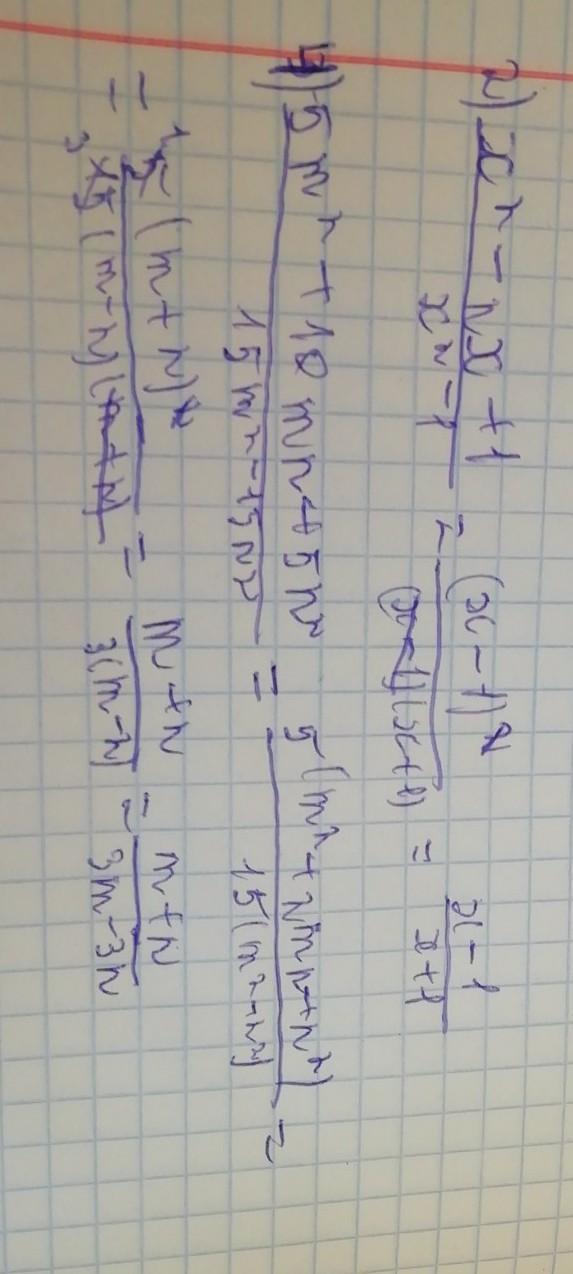 2) (x² - 2x + 1)/(x² - 1) = (x - 1)²/((x - 1)(x + 1)) = (x - 1)/(x + 1)
4) (5m² + 10mn + 5n²)/(15m² - 15n²) = 5(m² + 2mn + n²)/(15(m² - n²)) =
= 5(m + n)²/(15(m - n)(m + n)) = (m + n)/(3(m - n)) = (m + n)/(3m - 3n)